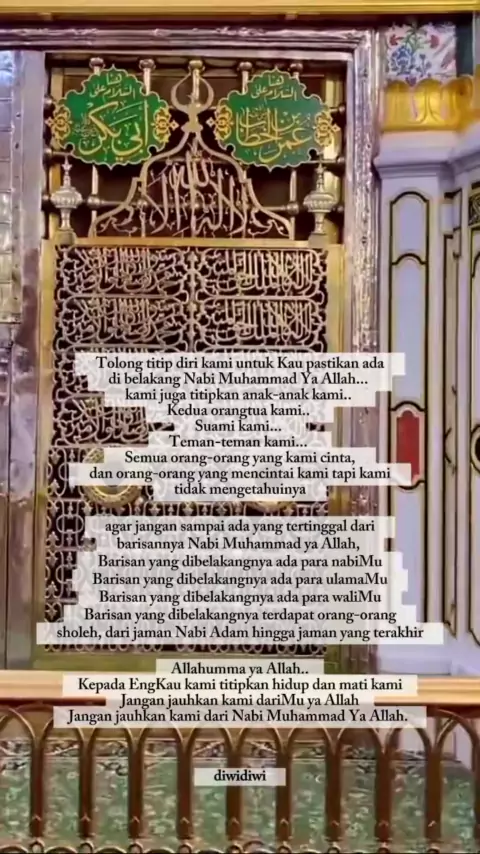 هنا
السلام على
أبي بكر
هنا
السلام على
عمر بن الخطاب
لا إله إلا الله
Tolong titip diri kami untuk Kau pastikan ada
di belakang Nabi Muhammad Ya Allah...
kami juga titipkan anak-anak kami..
Kedua orangtua kami..
Suami kami...
Teman-teman kami...
Semua orang-orang yang kami cinta,
dan orang-orang yang mencintai kami tapi kami
tidak mengetahuinya
agar jangan sampai ada yang tertinggal dari
barisannya Nabi Muhammad ya Allah,
Barisan yang dibelakangnya ada para nabiMu
Barisan yang dibelakangnya ada para ulamaMu
Barisan yang dibelakangnya ada para waliMu
Barisan yang dibelakangnya terdapat orang-orang
sholeh, dari jaman Nabi Adam hingga jaman yang terakhir
Allahumma ya Allah..
Kepada EngKau kami titipkan hidup dan mati kami
Jangan jauhkan kami dariMu ya Allah
Jangan jauhkan kami dari Nabi Muhammad Ya Allah.
diwidiwi